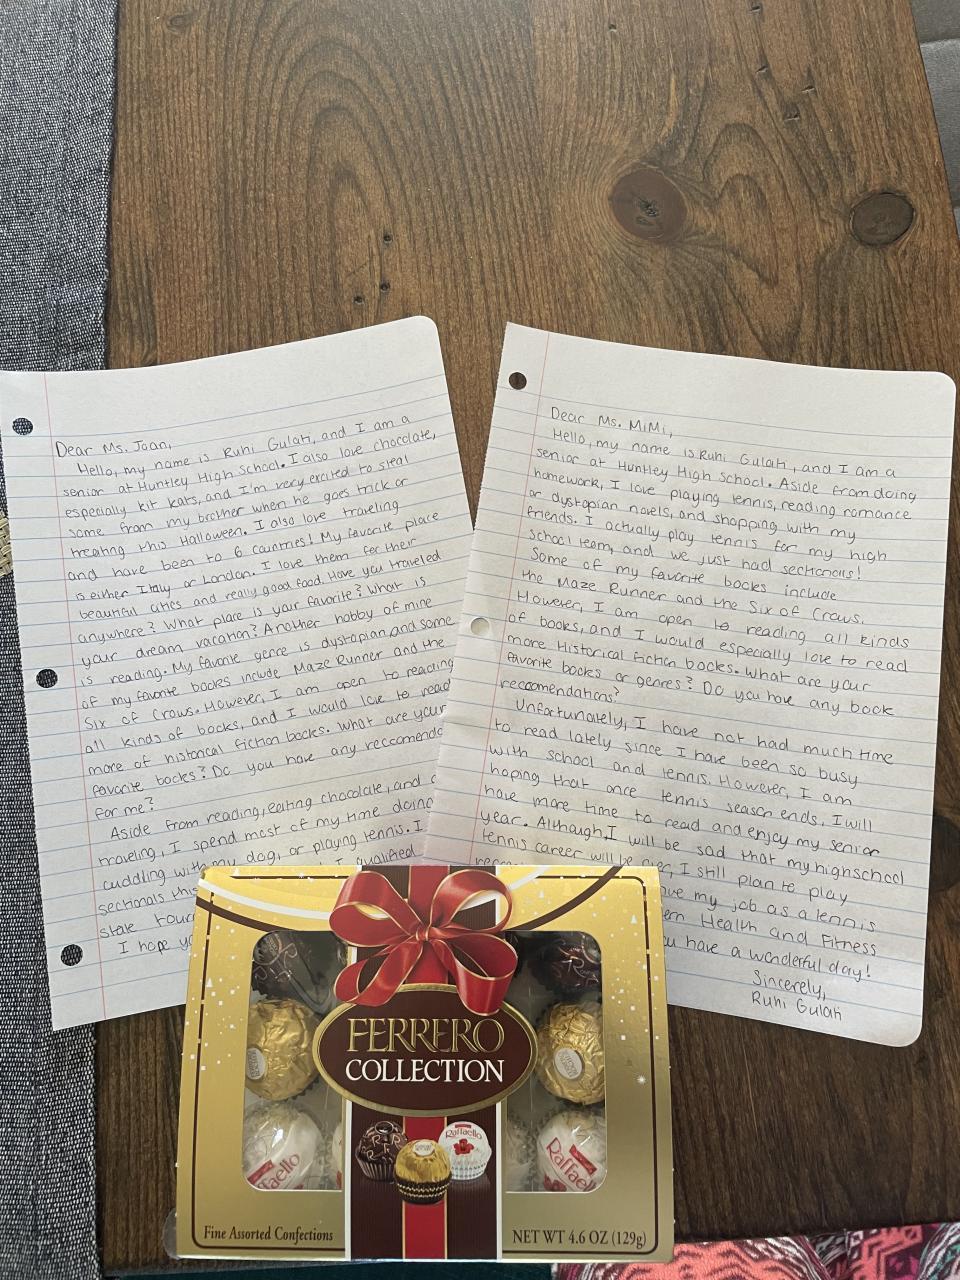 Dear Ms. Joan,
Hello, my name is Ruhi Gulati, and I am a
senior at Huntley High School. I also love chocolate,
especially kit kats, and I'm very excited to steal
some from my brother when he goes trick or
treating this Halloween. I also love traveling
and have been to 6 countries! My favorite place
is either Italy or London. I love them for their
beautiful cities and really good food. Have you traveled
anywhere? What place is your favorite? What is
your dream vacation? Another hobby of mine
is reading. My favorite genre is dystopian, and some
of my favorite books include Maze Runner and the
Six of Crows. However, I am open to reading
all kinds of books, and I would love to read
more of historical fiction books. What are your
favorite books? Do you have any reccomenda
for me?
Aside from reading, eating chocolate, and
traveling, I spend most of my time doing
cuddling with my dog, or playing tennis. I
sectionals this I qualified
state tour
I hope yo
Dear Ms. MiMi,
Hello, my name is Ruhi Gulati, and I am a
senior at Huntley High School. Aside from doing
homework, I love playing tennis, reading romance
or dystopian novels, and shopping with my
friends. I actually play tennis for my high
school team, and we just had sectionals!
Some of my favorite books include
the Maze Runner and the Six of Crows.
However, I am open to reading all kinds
of books, and I would especially love to read
more Historical fiction books. What are your
favorite books or genres? Do you have any book
reccomendations?
Unfortunately, I have not had much time
to read lately since I have been so busy
with school and tennis. However, I am
hoping that once tennis season ends, I will
have more time to read and enjoy my senior
year. Although, I will be sad that my highschool
tennis career will be over, I still plan to play
ave my job as a tennis
ern Health and Fitness
u have a wonderful day!
Sincerely,
Ruhi Gulati
FERRERO
COLLECTION
Raffaello
Raffaello
Fine Assorted Confections
NET WT 4.6 OZ (129g)